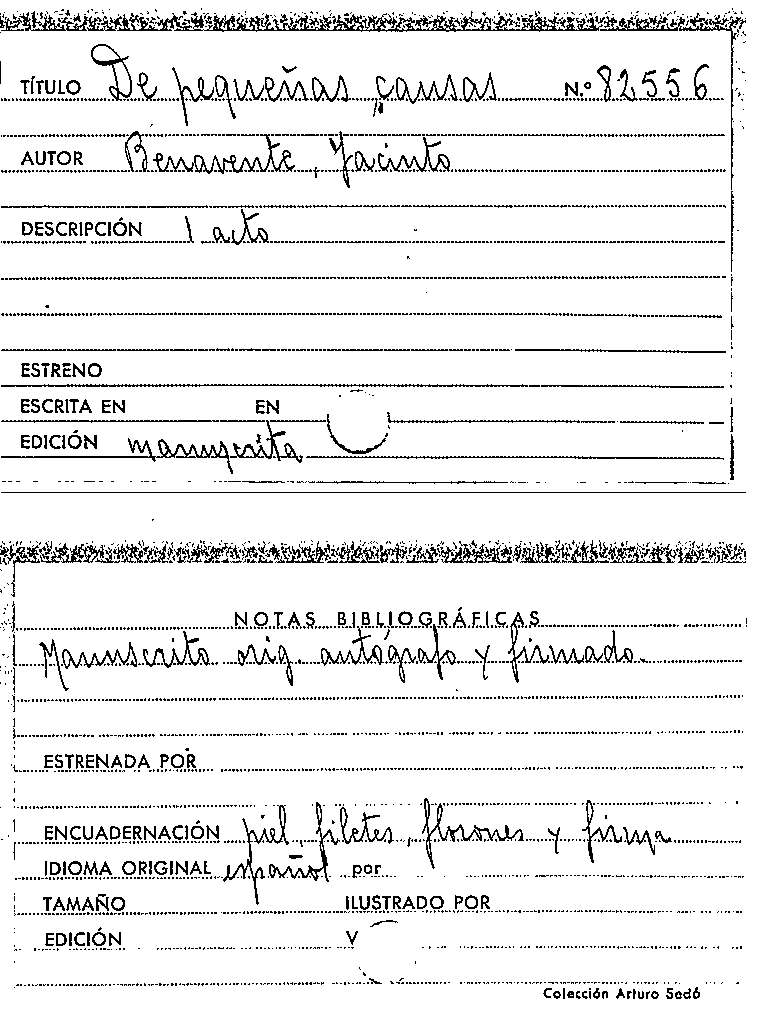 TÍTULO De pequeñas causas N.º 82556
AUTOR Benavente, Jacinto
DESCRIPCIÓN 1 acto
ESTRENO
ESCRITA EN EN
EDICIÓN manuscrita
NOTAS BIBLIOGRÁFICAS
Manuscrito orig. autógrafo y firmado.
ESTRENADA POR
ENCUADERNACIÓN piel, filetes, florones y firma
IDIOMA ORIGINAL español por
TAMAÑO ILUSTRADO POR
EDICIÓN V
Colección Arturo Sedó